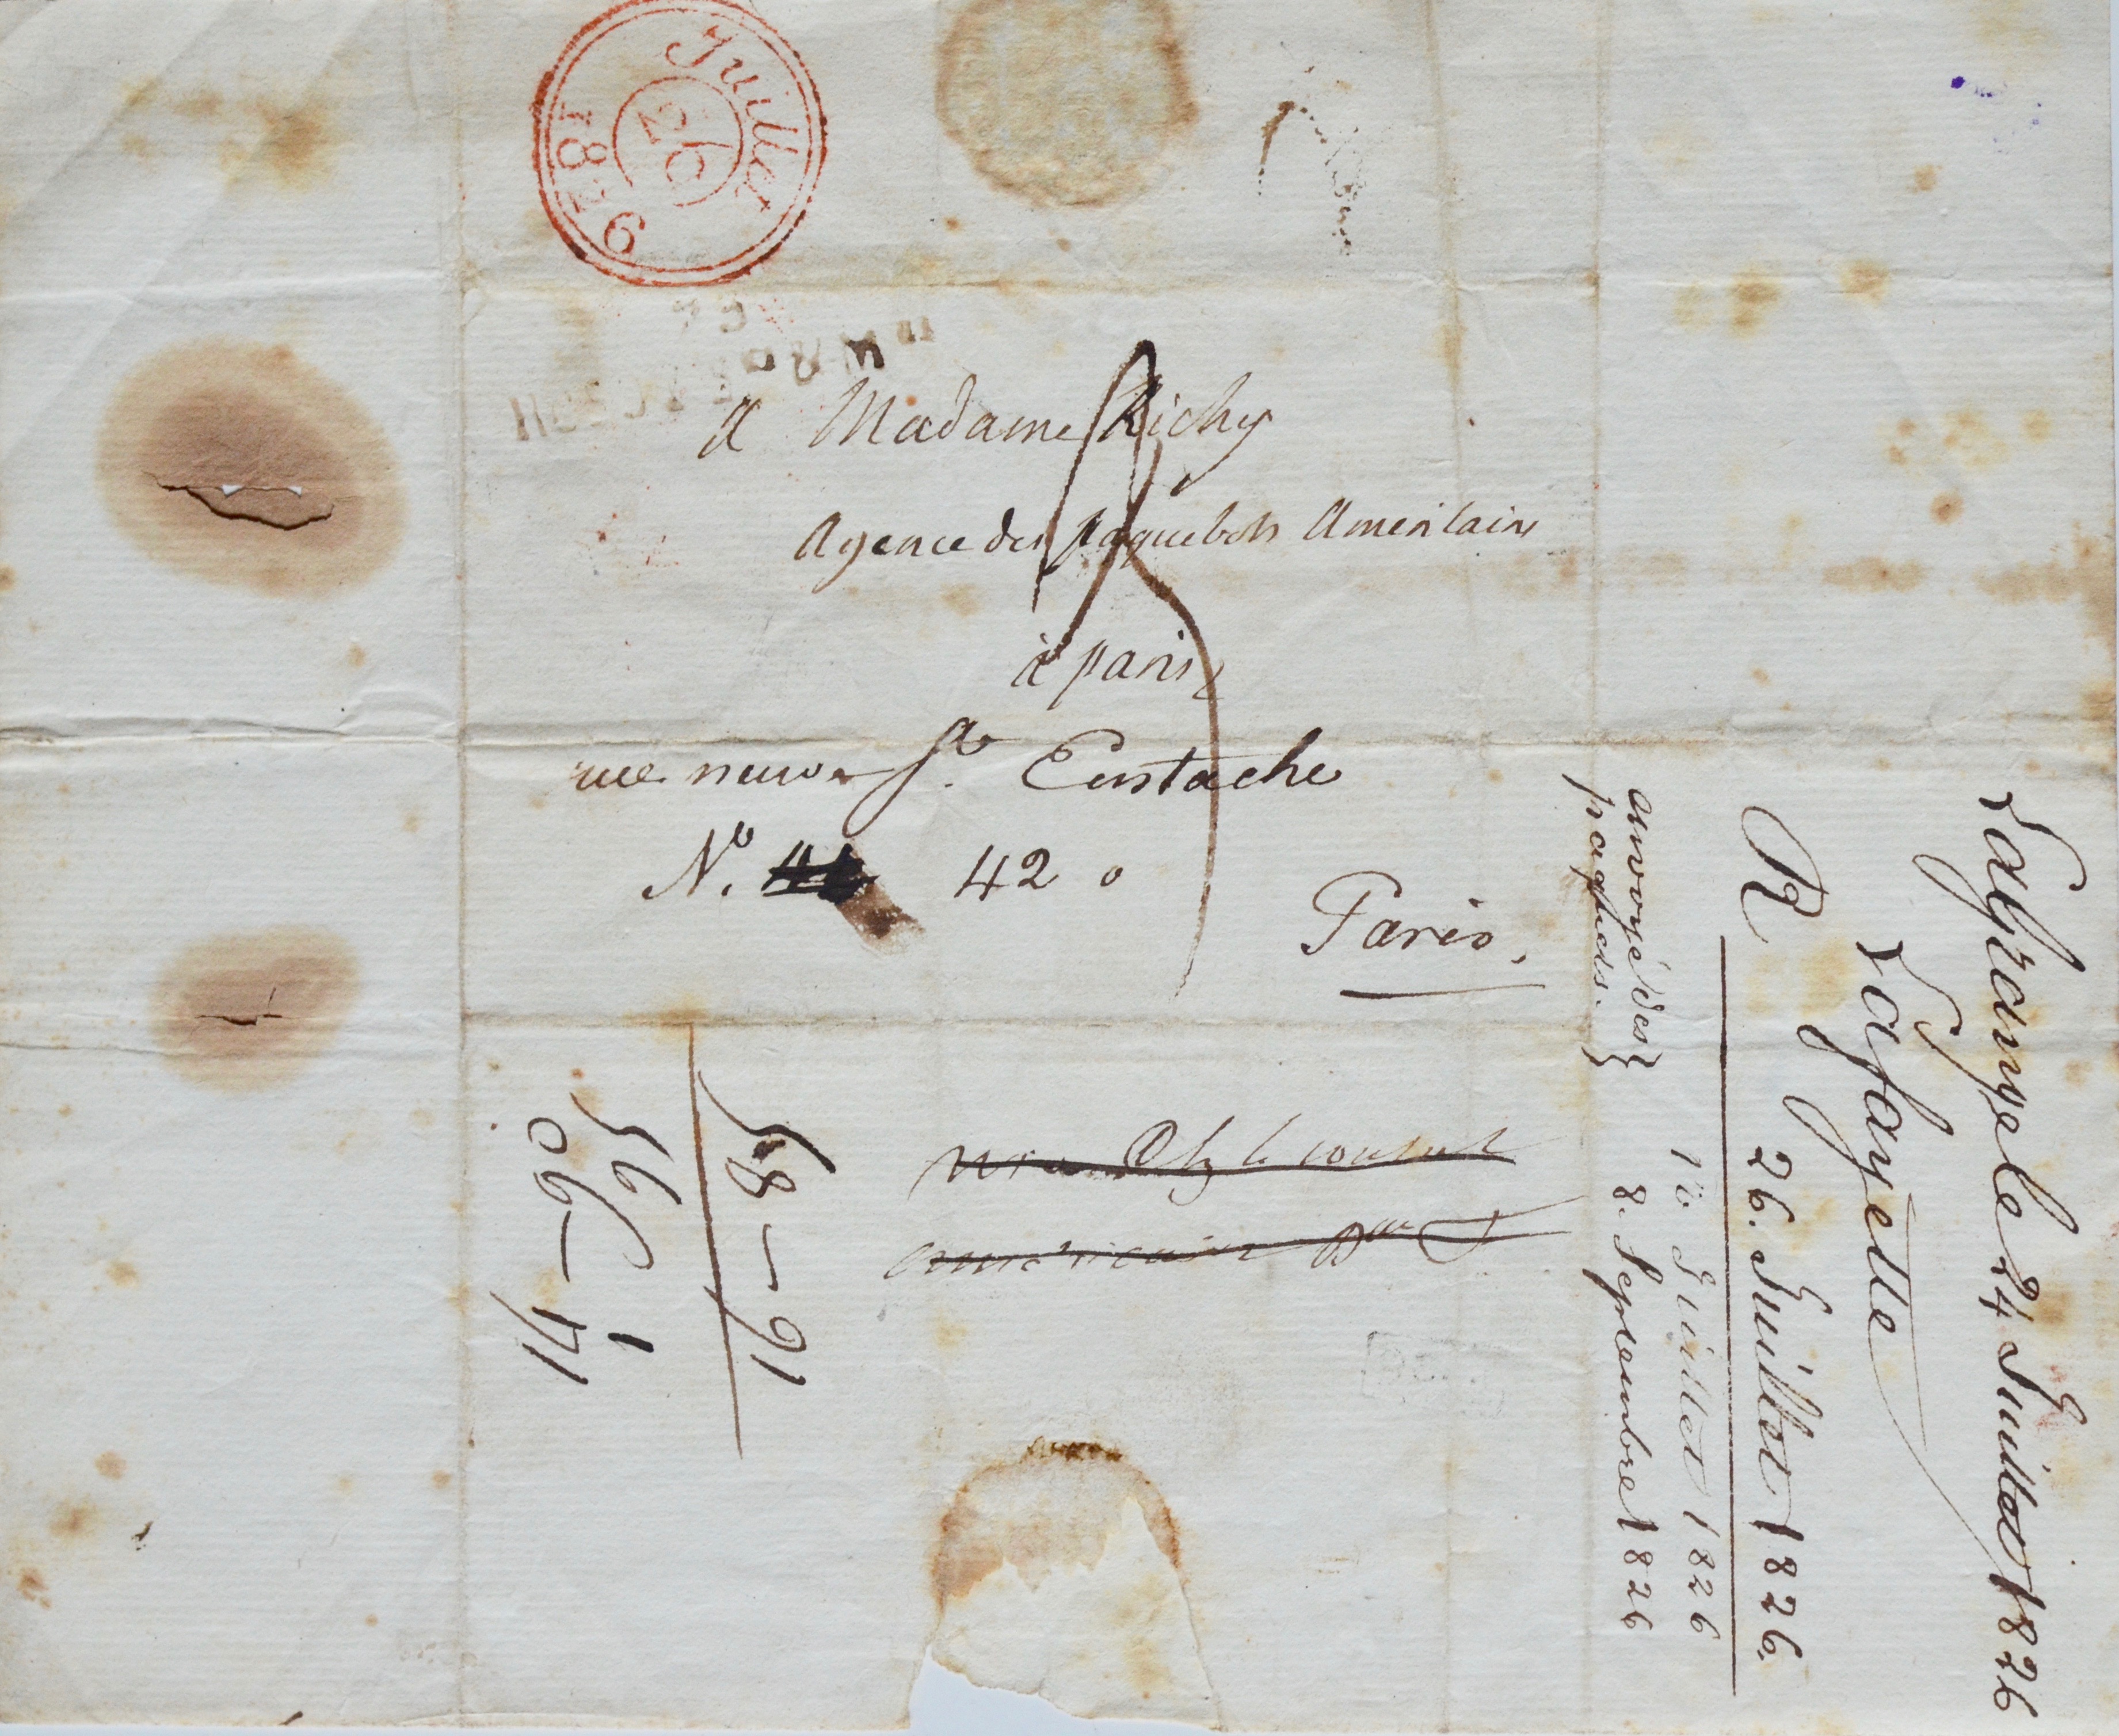 Juillet
26
1826
A Madame Richy
Agence des paquebots Americains
à paris
rue neuve St. Eustache
No. 42
Paris.
le consul
américain
Lagrange le 24 Juillet 1826
Lafayette
R 26. Juillet 1826.
Juillet 1826
8. Septembre 1826
envoyé des
paquets.
58 - 91
56 1
06 - 41